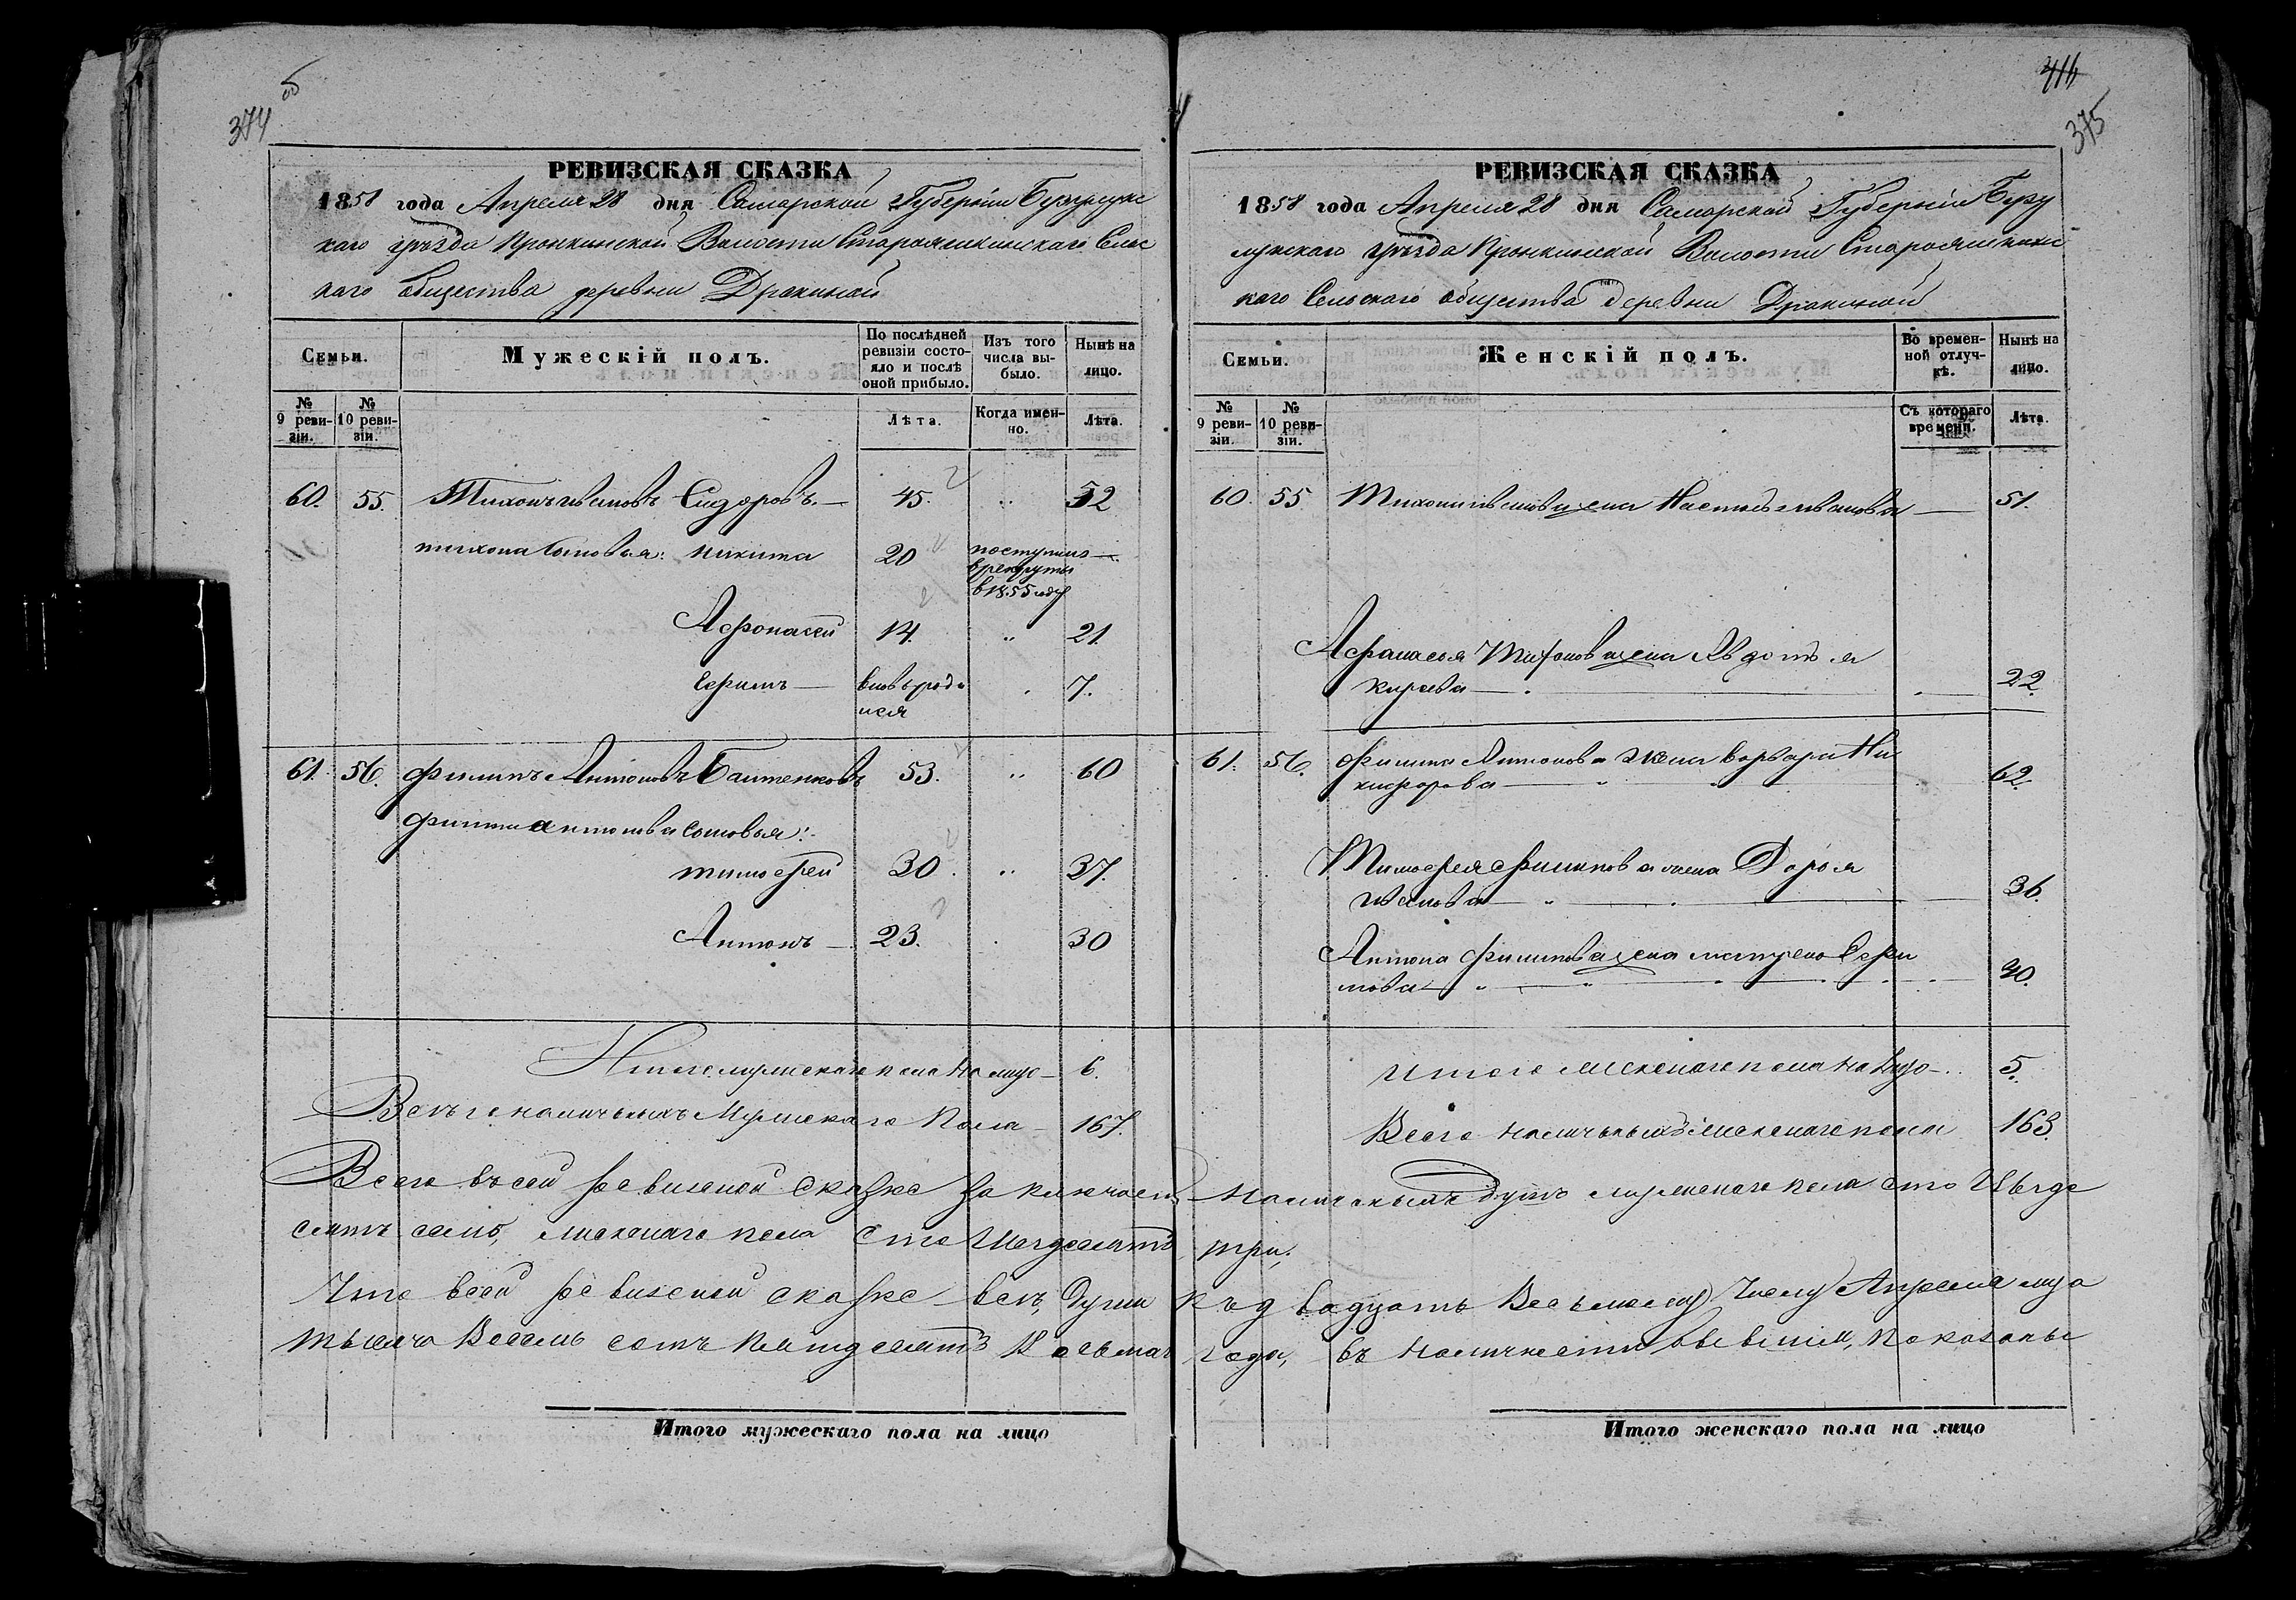 374 об
РЕВИЗСКАЯ СКАЗКА
1858 года Апреля 28 дня Самарской Губернiи Бузулукс
каго уѣзда Пронкинской Волости Староякшинскаго Сельс
каго общества деревни Дракиной
Семьи.
Мужескiй полъ.
По послѣдней ревизiи состо-
яло и послѣ оной прибыло.
Изъ того числа вы-
было.
Нынѣ на лицо.
№ 9 реви-
зiи.
№ 10 реви-
зiи.
Лѣта.
Когда имен-
но.
Лѣта.
60. 55. Тихонъ Ивановъ Сидоровъ. 45. 52
Тихона сыновья: Никита 20 поступилъ
в рекруты
в 1855 году
Афонасей 14. 21.
Ефимъ вновь роди
лся 7.
61. 56. Филипъ Антоновъ Баитенковъ 53. 60
Филипа Антонова сыновья:
Тимофей 30. 37.
Антонъ 23. 30
Итого мужескаго пола на лицо 6.
Всего наличныхъ Мужескаго Пола 167.
414
375
РЕВИЗСКАЯ СКАЗКА
1858 года Апреля 28 дня Самарской Губернiи Бузу
лукскаго уѣзда Пронкинской Волости Староякшинс
каго Сельскаго общества деревни Дракиной
Семьи.
Женскiй полъ.
Во времен-
ной отлуч-
кѣ.
Нынѣ на лицо.
№ 9 реви-
зiи.
№ 10 реви-
зiи.
Съ котораго времени.
Лѣта.
60. 55 Тихона Иванова жена Настасья Иванова 51.
Афанасья Тихонова жена Авдотья
22.
61. 56. Филипа Антонова жена Варвара Ни
кифорова 62.
Тимофея Филипова жена Дарья
Иванова 36.
Антона Филипова жена Матрена Ефи
мова 30.
Итого женскаго пола на лицо 5.
Всего наличныхъ женскаго пола 163.
Всего въ сей ревиской сказке заключаетъ наличныхъ душъ мужескаго пола сто шездe
сятъ семь, женскаго пола сто шездесятъ три,
Что в сей ревиской сказке все души къ двадцать восьмому числу Апреля
тысяча восемь сотъ пятдесятъ восьмаго года, въ наличности показаны
Итого мужескаго пола на лицо
Итого женскаго пола на лицо